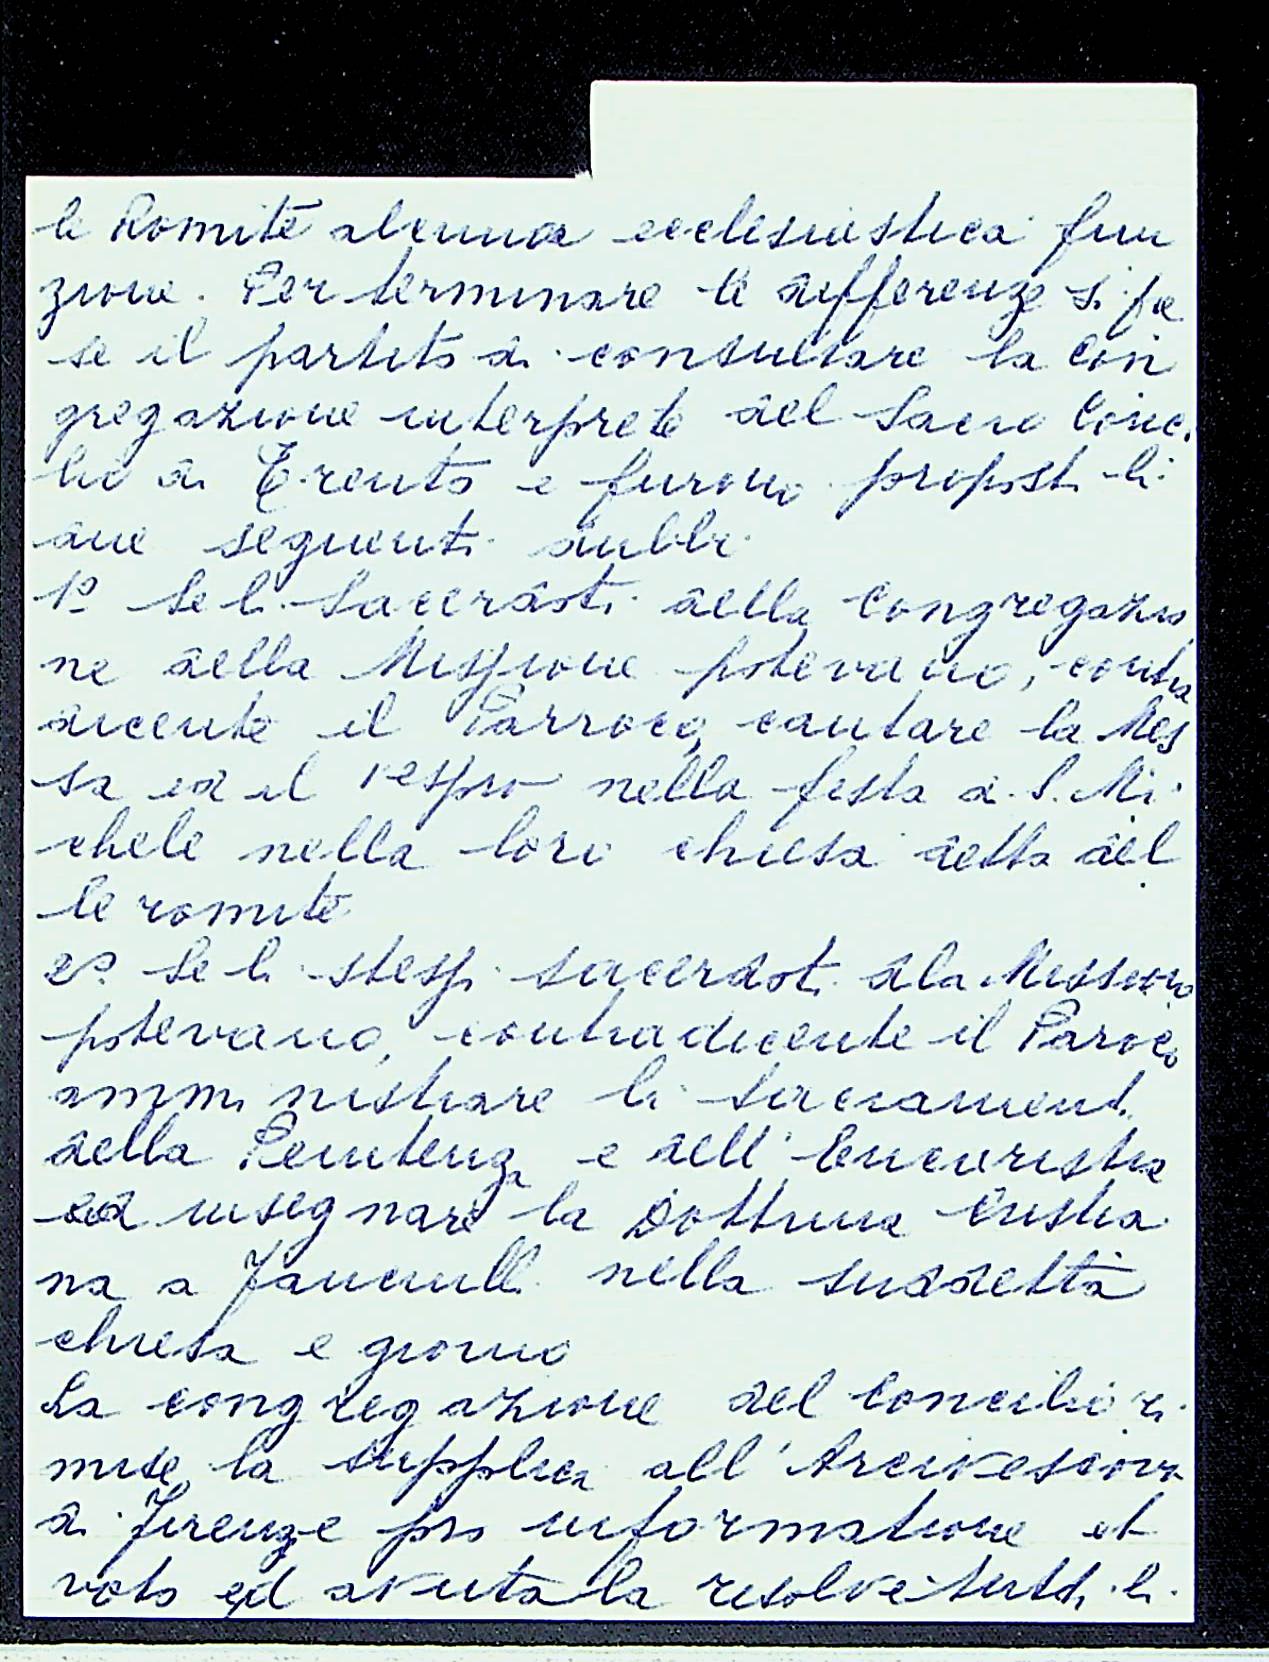 le Romite alcuna ecclesiastica fun
zione. Per terminare le differenze si fe
se il partito di consultare la Con
gregazione interprete del Sacro Conci
lio di Trento e furono proposti li
due seguenti dubbi
1º Se li Sacerdoti della Congregazio
ne della Missione potevano, contra
dicente il Parroco, cantare la Mes
sa ed il vespro nella festa di S. Mi
chele nella loro chiesa detta del
le romite
2º Se li stessi sacerdoti d la Missione
potevano, contradicente il Paroco
amministrare li Sacramenti
della Penitenza e dell'Eucaristia
ed insegnare la Dottrina Cristia
na a Fanciulli nella suddetta
chiesa e giorno
La congregazione del Concilio ri
mise la supplica all'Arcivescovo
di Firenze pro informatione et
voto ed avutala risolve tutti li